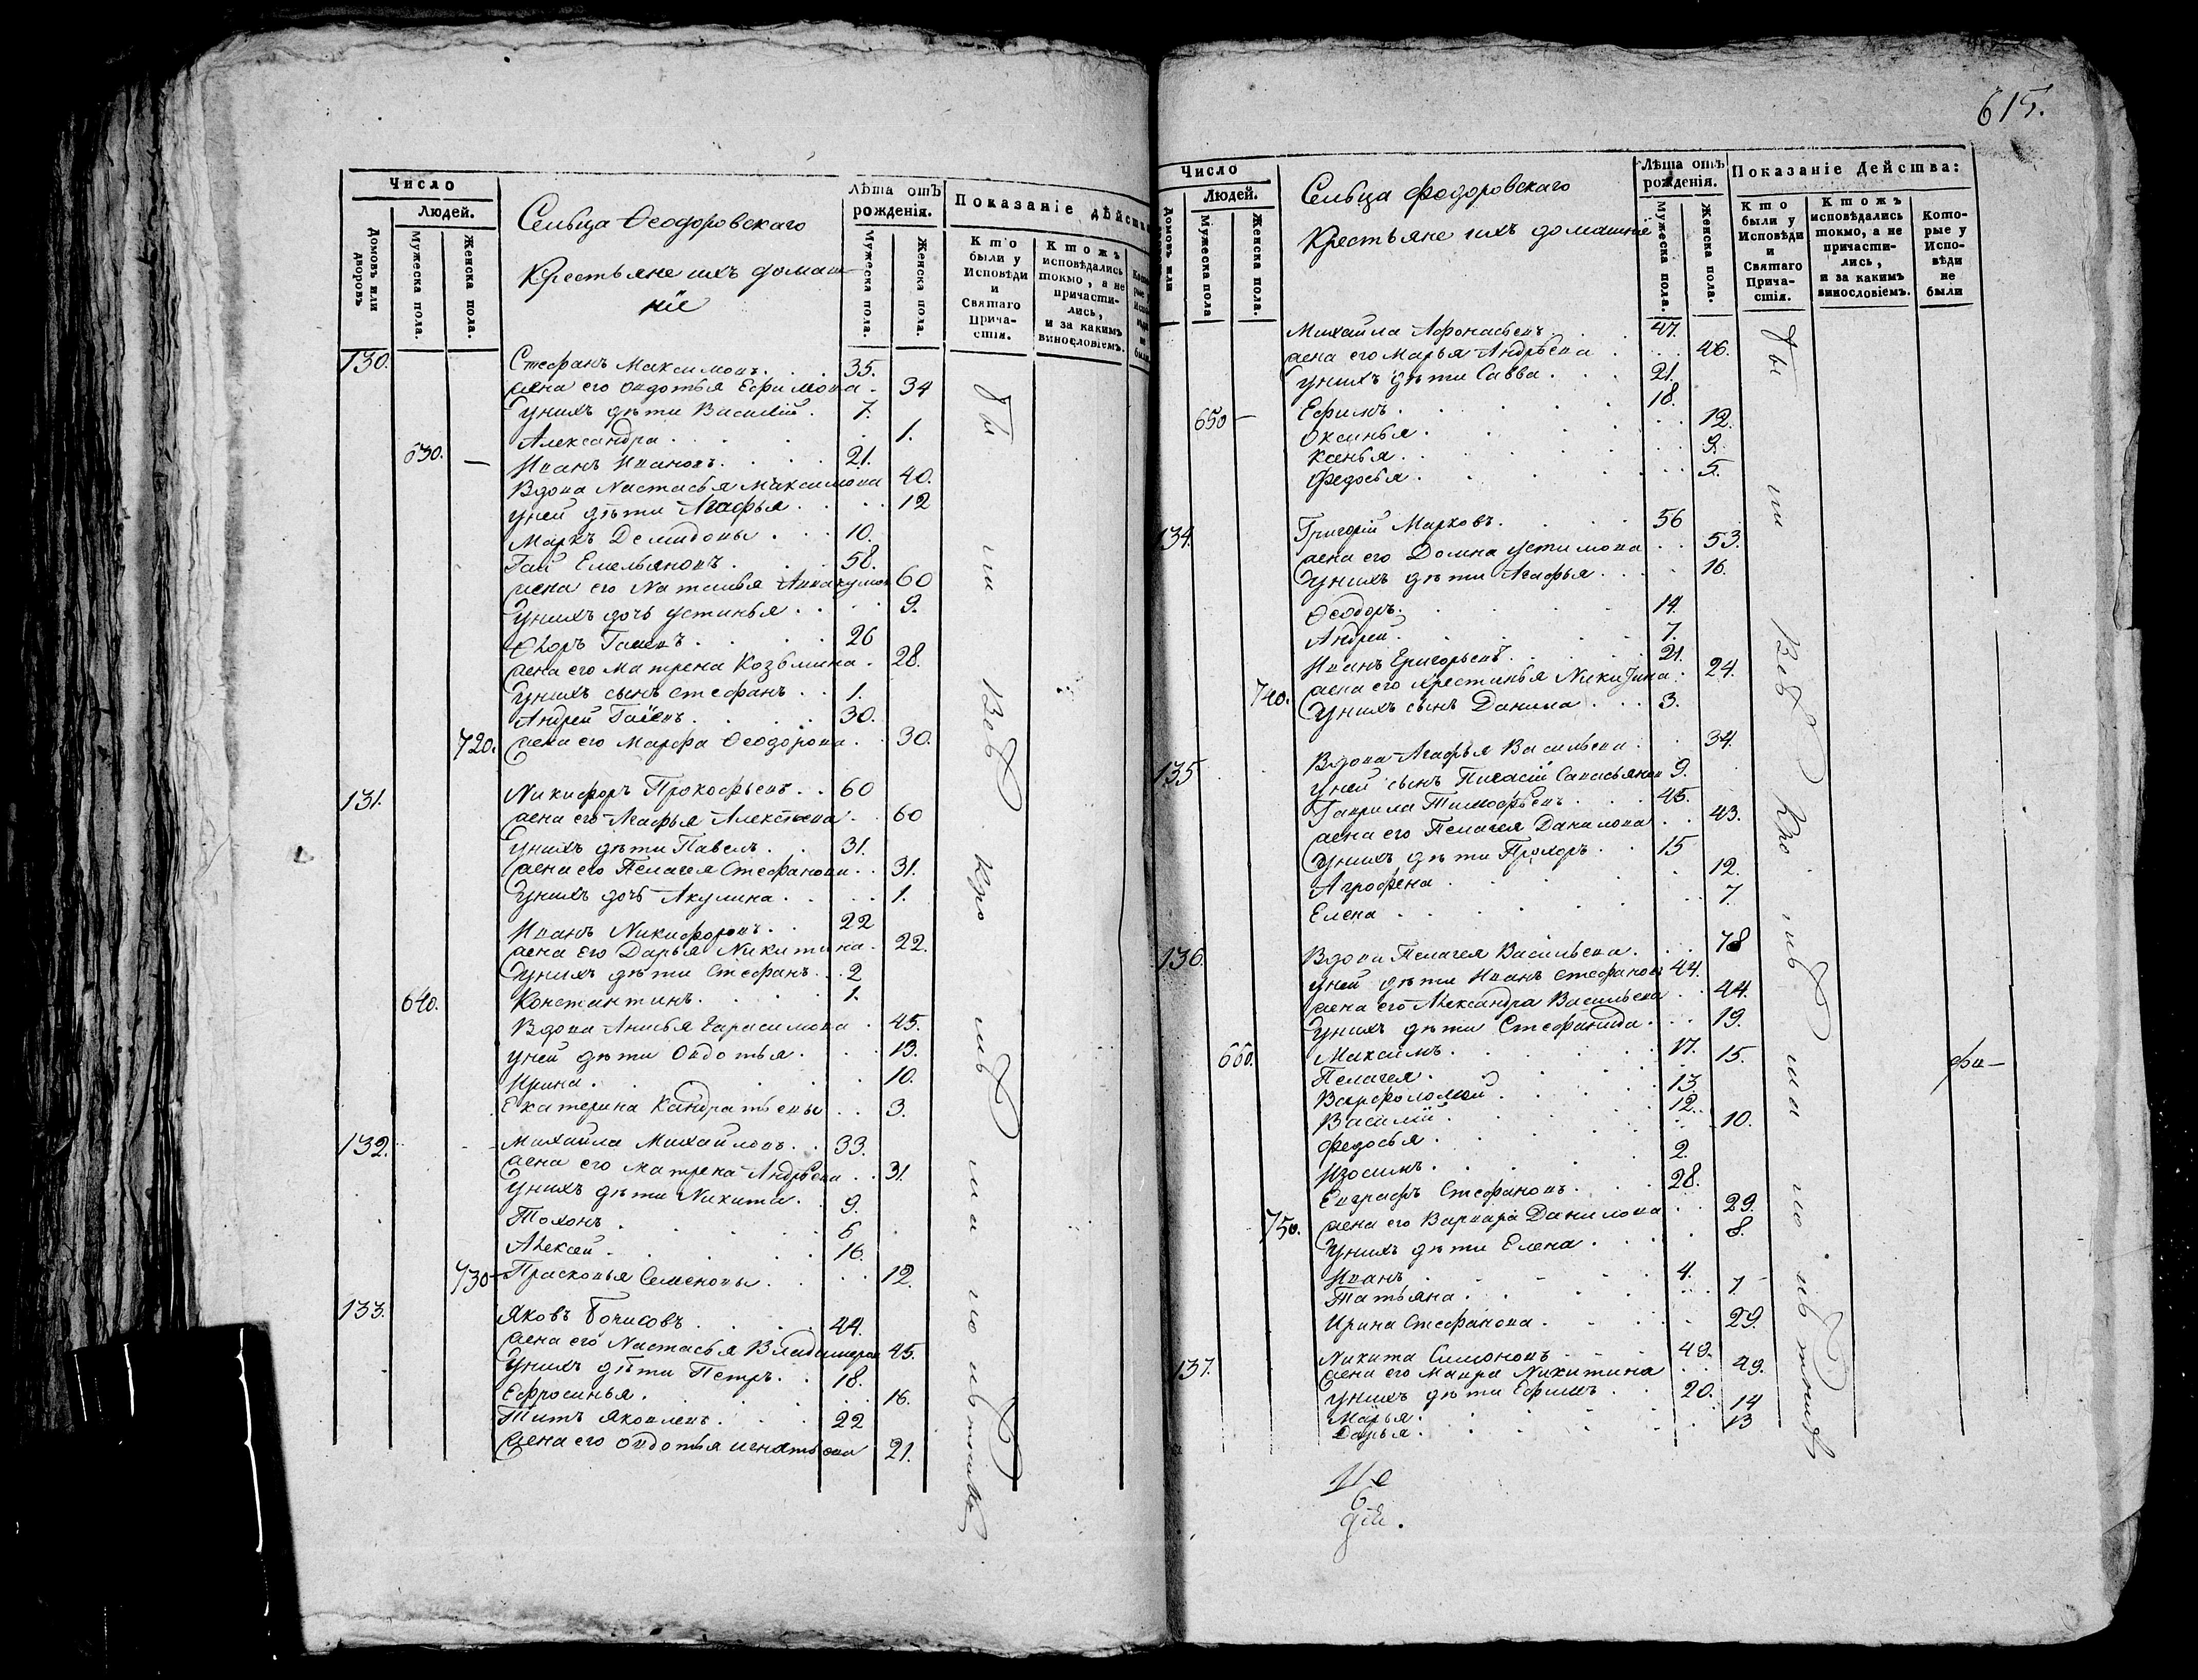 Число
Людей.
Домовъ или дворовъ
Мужеска пола.
Женска пола.
Сельца Ѳеодоровскаго
Крестьяне ихъ домаш-
ніе
Лѣта отъ рожденія.
Мужеска пола.
Женска пола.
Показаніе дѣйст
Кто были у Исповѣди и Святаго Прича-стія.
Ктожъ исповѣдались токмо, а не причасти-лись, и за какимъ винословіемъ.
130. Стефанъ Максимовъ. 35.
жена его Овдотья Ефимова. 34
у нихъ дѣти Василій. 7.
Александра. 1.
630. — Иванъ Ивановъ. 21.
Вдова Настасья Максимова 40.
у ней дѣти Агафья. 12
Маркъ Демидовы. 10.
Гай Емельяновъ. 58.
жена его Наталья 60
у нихъ дочь Устинья. 9.
Ѳлоръ Гаіевъ. 26
жена его Матрена Козьмина. 28.
у нихъ сынъ Стефанъ. 1.
Андрей Гаіевъ. 30.
720. жена его Марфа Ѳеодорова. 30.
131. Никифоръ Прокофьевъ. 60
жена его Агафья Алексѣева. 60
у нихъ дѣти Павелъ. 31.
жена его Пелагея Стефанова. 31.
у нихъ дочь Акулина. 1.
Иванъ Никифоровъ. 22
жена его Дарья Никитина. 22.
у нихъ дѣти Стефанъ. 2
640. Константинъ. 1.
Вдова Анисья Гарасимова. 45.
у ней дѣти Овдотья. 13.
Ирина. 10.
Екатерина Кандратьевы. 3.
132. Михайла Михайловъ. 33.
жена его Матрена Андрѣева. 31.
у нихъ дѣти Никита. 9.
6
Алексѣй. 16.
730 — Прасковья Семеновы. 12.
133. Яковъ Борисовъ. 44.
жена его Настасья 45.
у нихъ дѣти Петръ. 18.
Ефросинья. 16.
Титъ Яковлевъ. 22
жена его Овдотья Игнатьева 21.
615.
Число
Людей.
Домовъ или
Мужеска пола
Женска пола.
Сельца Федоровскаго
Крестьяне ихъ домашніе
Лѣта отъ рожденія.
Мужеска пола.
Женска пола.
Показаніе Дейсмва:
Кто были у Исповѣди и Святаго Прича-стія.
Ктожъ исповѣдались токмо, а не причасти-лись, и за какимъ винословіемъ.
Кото-рые у Испо-вѣди не были
Михайла Афонасьевъ. 47.
жена его Марья Андрѣева. 46.
у нихъ дѣти Савва. 21.
650 — Ефимъ. 18.
Оксинья. 12.
9.
Федосья. 5.
134. Григорій Марковъ. 56
жена его Домна Устимова. 53.
у нихъ дѣти Агафья. 16.
Ѳеодоръ. 14.
Андрей. 7.
Иванъ Григорьевъ. 21.
жена его Хрестинья 24.
740. у нихъ сынъ Данила. 3.
135 Вдова Агафья Васильева. 34.
у ней сынъ 9.
Гаврила Тимофѣевъ. 45.
жена его Пелагея Данилова. 43.
у нихъ дѣти Прохоръ. 15
Агрофена. 12.
Елена. 7.
136. Вдова Пелагея Васильева. 78
у ней дѣти Иванъ Стефановъ 44.
жена его Александра Васильева 44.
у нихъ дѣти Стефанида. 19.
660. Максимъ. 17.
Пелагея. 15.
Варфоломей. 13.
Василій. 12.
Федосья. 10.
Изосимъ. 2.
Евграфъ Стефановъ. 28.
750. жена его Варвара Данилова 29.
у нихъ дѣти Елена. 8.
Иванъ. 4.
Татьяна. 1.
Ирина Стефанова. 29.
137. Никита Симоновъ. 49.
жена его Мавра Никитина 49.
у нихъ дѣти Ефимъ. 20.
Марья. 14
Дарья. 13